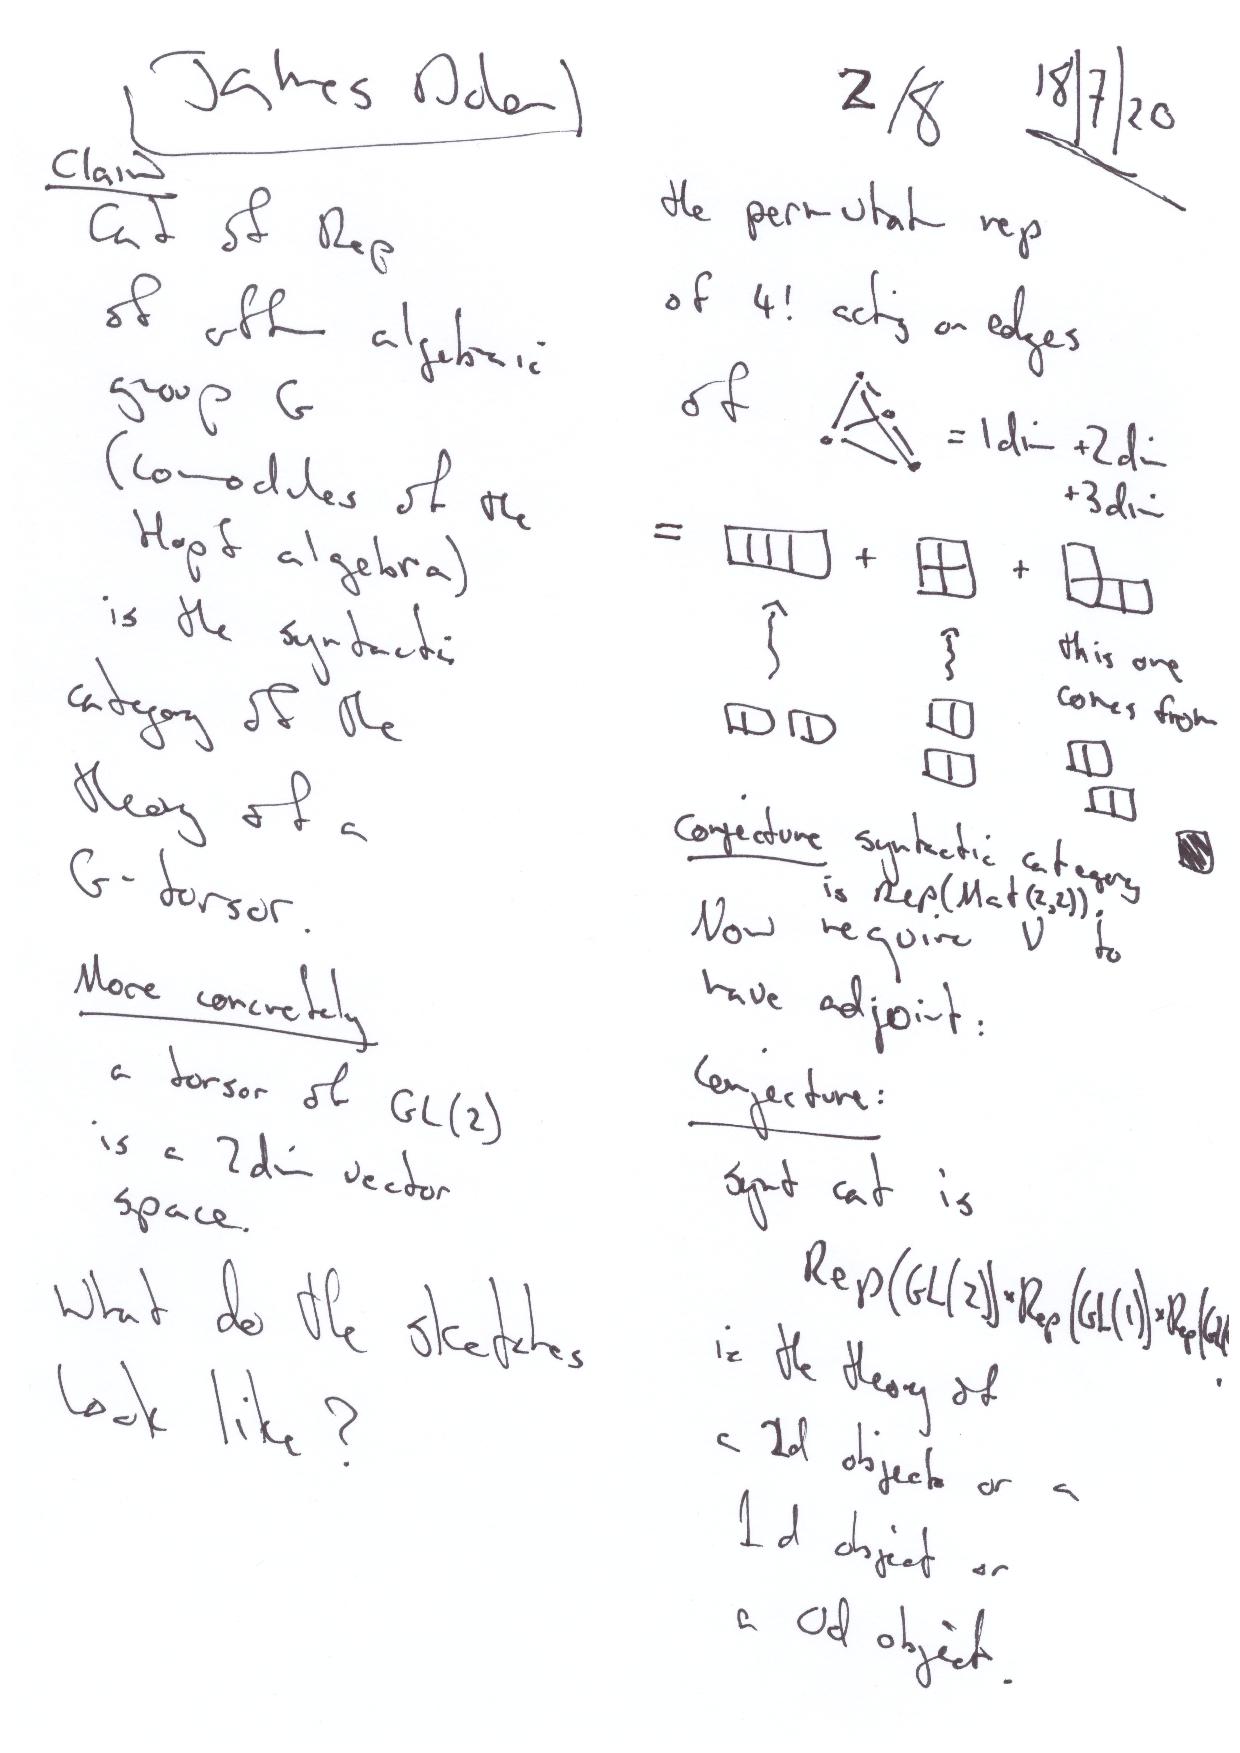 James Dolan
2/8
18/7/20
Claim
Cat of Rep
of affn algebraic
group G
(comodules of the
Hopf algebra)
is the syntactic
category of the
theory of a
G-torsor.
More concretely
a torsor of GL(2)
is a 2dim vector
space.
What do the sketches
look like?
the permutatn rep
of 4! acting on edges
of = 1dim +2dim
+3dim
= + +
this one
comes from
Conjecture syntactic category
is Rep(Mat(2,2)).
Now require V to
have adjoint:
Conjecture:
synt cat is
Rep(GL(2))×Rep(GL(1))×Rep(GL
is the theory of
a 2d object or a
1d object or
a 0d object.